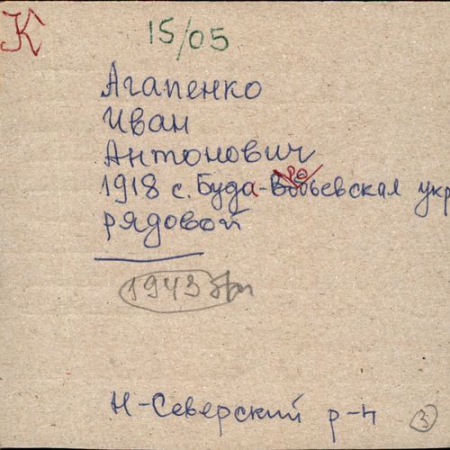 К
15/05
Агапенко
Иван
Антонович
1918 с. Буда-Вобьевская укр
рядовой
1943
Н-Северский р-н
3